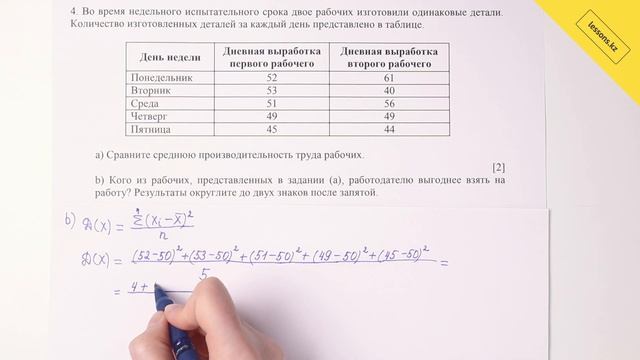 lessons.kz
4. Во время недельного испытательного срока двое рабочих изготовили одинаковые детали.
Количество изготовленных деталей за каждый день представлено в таблице.
День недели Дневная выработка первого рабочего Дневная выработка второго рабочего
Понедельник 52 61
Вторник 53 40
Среда 51 56
Четверг 49 49
Пятница 45 44
a) Сравните среднюю производительность труда рабочих.
[2]
b) Кого из рабочих, представленных в задании (а), работодателю выгоднее взять на
работу? Результаты округлите до двух знаков после запятой.
b) D(x) = Σ(xᵢ – x̄)² / n
D(x) = (52–50)² + (53–50)² + (51–50)² + (49–50)² + (45–50)² / 5 =
= 4 +